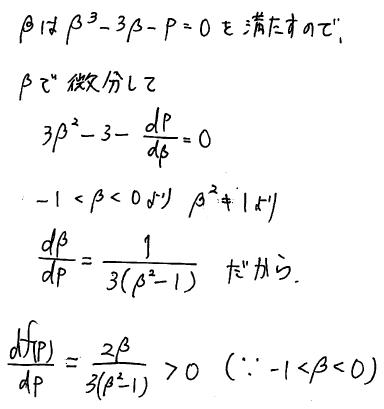 βは β³-3β-P=0 を満たすので、
βで微分して
3β²-3-dP/dβ=0
-1<β<0より β²≠1より
dβ/dP = 1/3(β²-1) だから、
df(P)/dP = 2β/3(β²-1) > 0 (∵ -1<β<0)